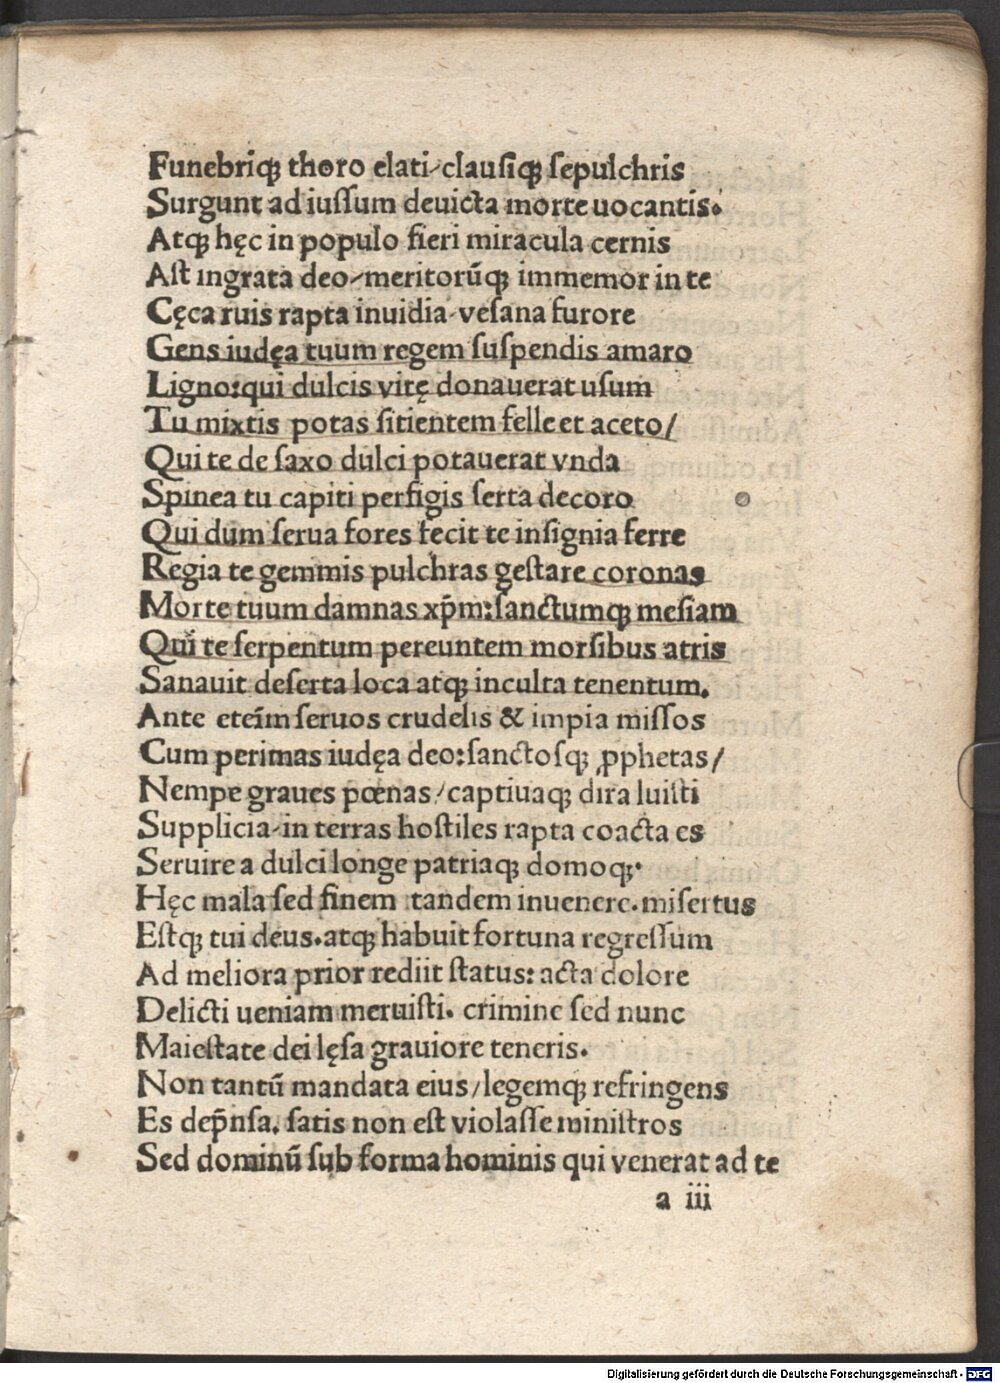 Funebriqꝫ thoro elati⸗clauſiqꝫ ſepulchris
Surgunt ad iuſſum deuicta morte uocantis.
Atqꝫ hęc in populo fieri miracula cernis
Aſt ingrata deo⸗meritorūqꝫ immemor in te
Cęca ruis rapta inuidia⸗veſana furore
Gens iudęa tuum regem ſuſpendis amaro
Ligno:qui dulcis vitę donauerat uſum
Tu mixtis potas ſitientem felle et aceto/
Qui te de ſaxo dulci potauerat vnda
Spinea tu capiti perfigis ſerta decoro
Qui dum ſerua fores fecit te inſignia ferre
Regia te gemmis pulchras geſtare coronas
Morte tuum damnas xp̄m:ſanctumqꝫ meſiam
Qui te ſerpentum pereuntem morſibus atris
Sanauit deſerta loca atqꝫ inculta tenentum.
Ante eteīm ſeruos crudelis & impia miſſos
Cum perimas iudęa deo:ſanctoſqꝫ ꝓphetas/
Nempe graues pœnas/captiuaqꝫ dira luiſti
Supplicia⸗in terras hoſtiles rapta coacta es
Seruire a dulci longe patriaqꝫ domoqꝫ·
Hęc mala ſed finem tandem inuenere.miſertus
Eſtqꝫ tui deus.atqꝫ habuit fortuna regreſſum
Ad meliora prior rediit ſtatus: acta dolore
Delicti ueniam meruiſti. crimine ſed nunc
Maieſtate dei lęſa grauiore teneris.
Non tantū mandata eius/legemqꝫ refringens
Es dep̄nſa. ſatis non eſt violaſſe miniſtros
Sed dominū ſub forma hominis qui venerat ad te
a iii
Digitalisierung gefördert durch die Deutsche Forschungsgemeinschaft - DFG